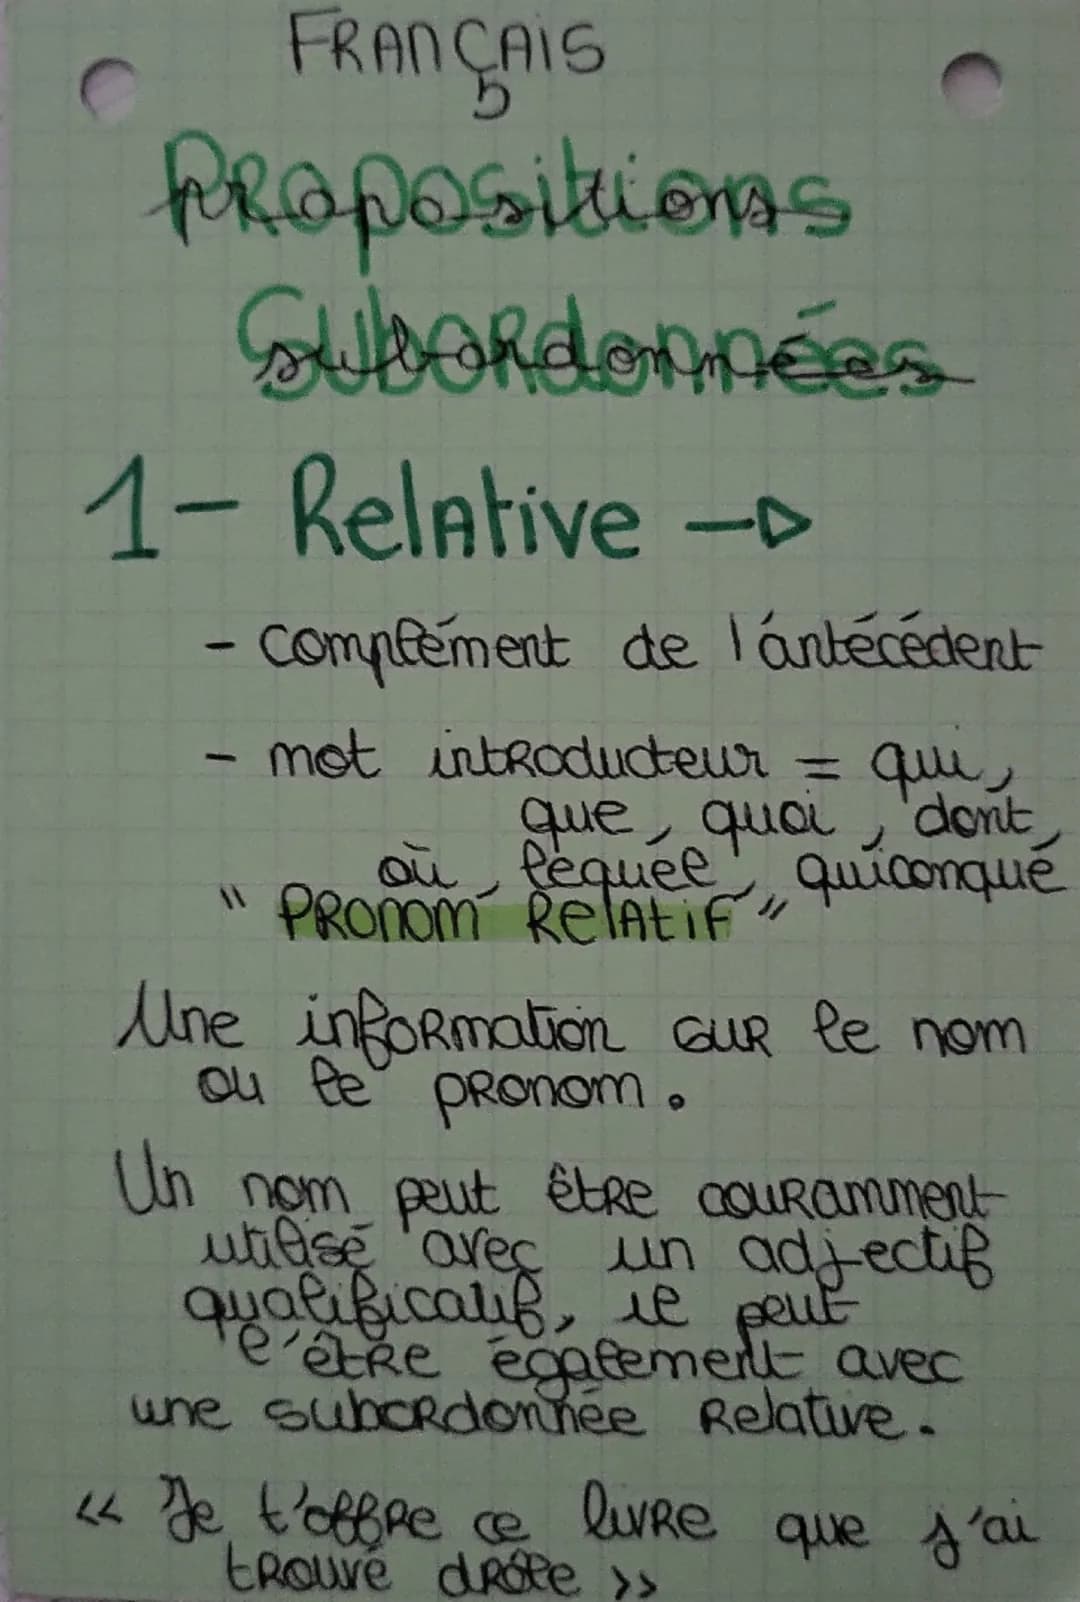 FRANÇAIS
Propositions
Subordonnées
1- Relative →
- complément de l'antécédent
- mot introducteur = qui,
que, quoi, dont,
où, lequel, quiconque
" PRONOM RELATIF "
Une information sur le nom
ou le pronom.
Un nom peut être couramment
utilisé avec un adjectif
qualificatif, il peut
l'être également avec
une subordonnée Relative.
« Je t'offre ce livre que j'ai
trouvé drôle »